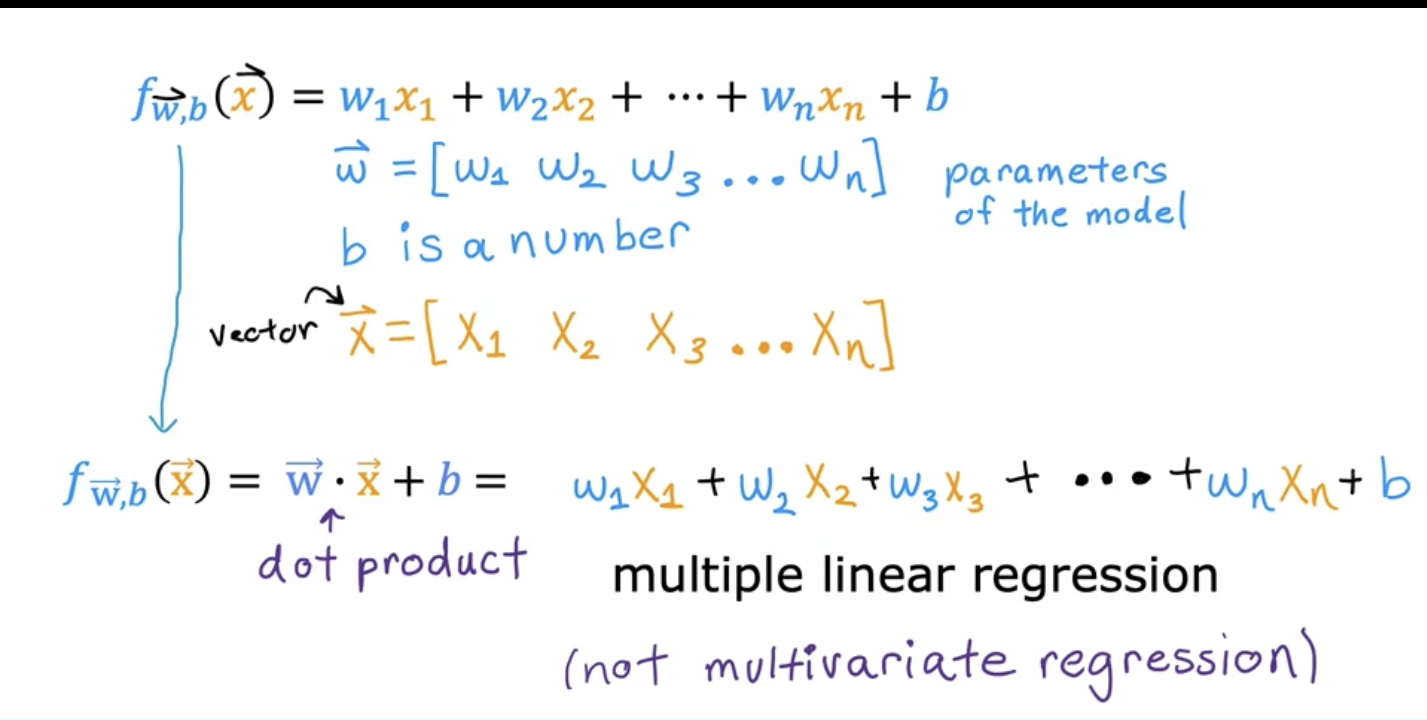 f_w⃗,b(x⃗) = w₁x₁ + w₂x₂ + ⋯ + wₙxₙ + b
w⃗ = [w₁ w₂ w₃ ... wₙ] parameters
of the model
b is a number
vector x⃗ = [x₁ x₂ x₃ ... xₙ]
f_w⃗,b(x⃗) = w⃗ · x⃗ + b = w₁x₁ + w₂x₂ + w₃x₃ + ⋯ + wₙxₙ + b
dot product
multiple linear regression
(not multivariate regression)